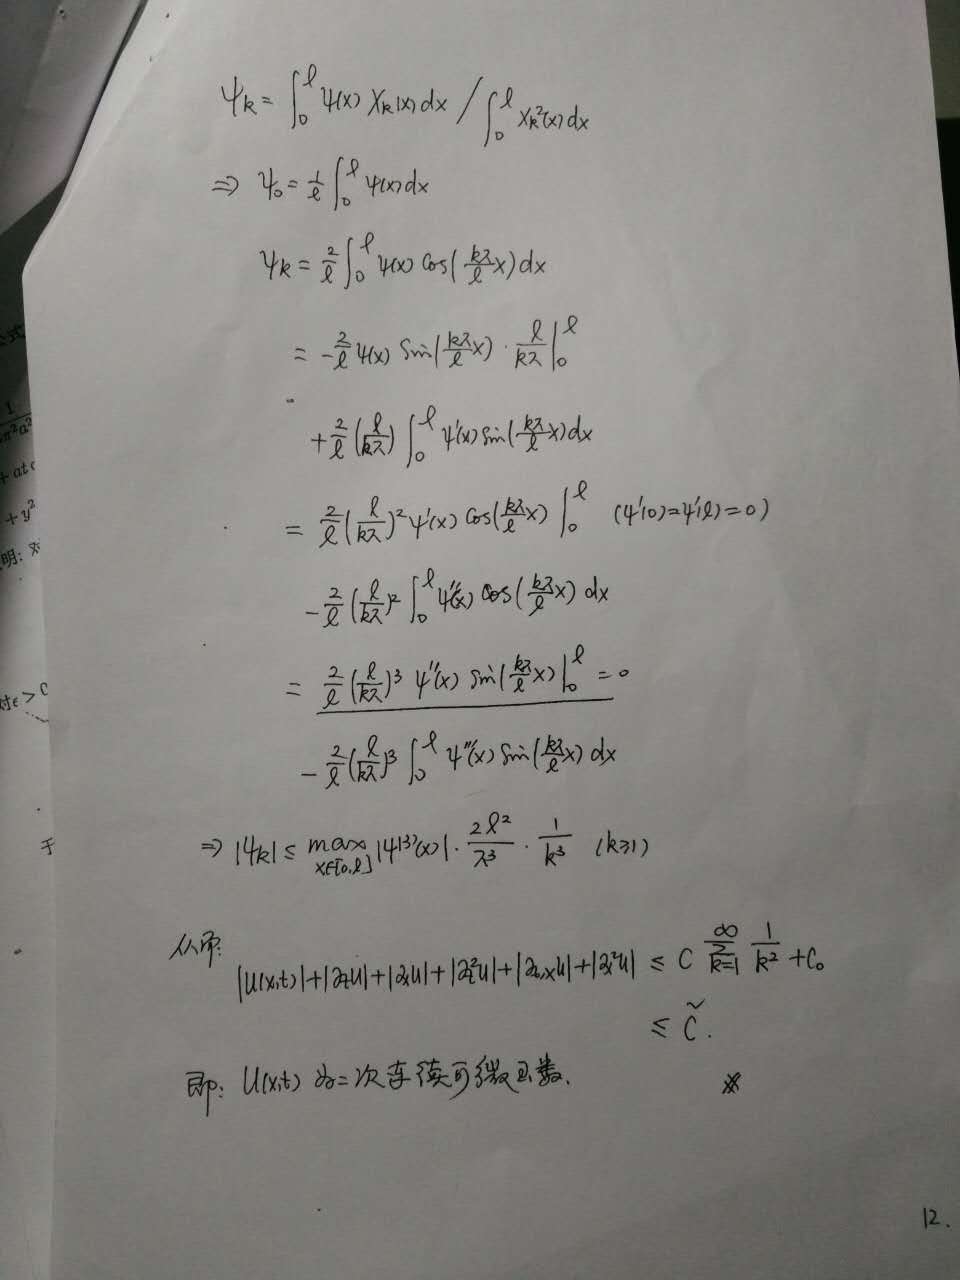 ψₖ = ∫₀ˡ ψ(x) Xₖ(x) dx / ∫₀ˡ Xₖ²(x) dx
⇒ ψ₀ = 1/ℓ ∫₀ˡ ψ(x) dx
ψₖ = 2/ℓ ∫₀ˡ ψ(x) cos(kπ/ℓ x) dx
= -2/ℓ ψ(x) Sin(kπ/ℓ x) · ℓ/kπ |₀ˡ
+ 2/ℓ (ℓ/kπ) ∫₀ˡ ψ'(x) sin(kπ/ℓ x) dx
= 2/ℓ (ℓ/kπ)² ψ'(x) cos(kπ/ℓ x) |₀ˡ (ψ'(0)=ψ'(ℓ)=0)
- 2/ℓ (ℓ/kπ)² ∫₀ˡ ψ''(x) cos(kπ/ℓ x) dx
= 2/ℓ (ℓ/kπ)³ ψ''(x) sin(kπ/ℓ x) |₀ˡ = 0
- 2/ℓ (ℓ/kπ)³ ∫₀ˡ ψ'''(x) sin(kπ/ℓ x) dx
⇒ |ψₖ| ≤ max x∈[0,ℓ] |ψ⁽³⁾(x)| · 2ℓ²/π³ · 1/k³ (k≥1)
从而:
|u(x,t)|+|∂ₜu|+|∂ₓu|+|∂ₜ²u|+|∂ₜ,ₓu|+|∂ₓ²u| ≤ C ∑ₖ₌₁^∞ 1/k² + C₀
≤ C̃.
即: u(x,t) 为二次连续可微函数.
※
12.
公式
1
π²a²
+ at
+ y²
明: 对
对ε > 0
于